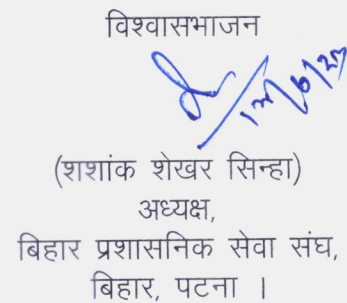 विश्वासभाजन
(शशांक शेखर सिन्हा)
अध्यक्ष,
बिहार प्रशासनिक सेवा संघ,
बिहार, पटना ।